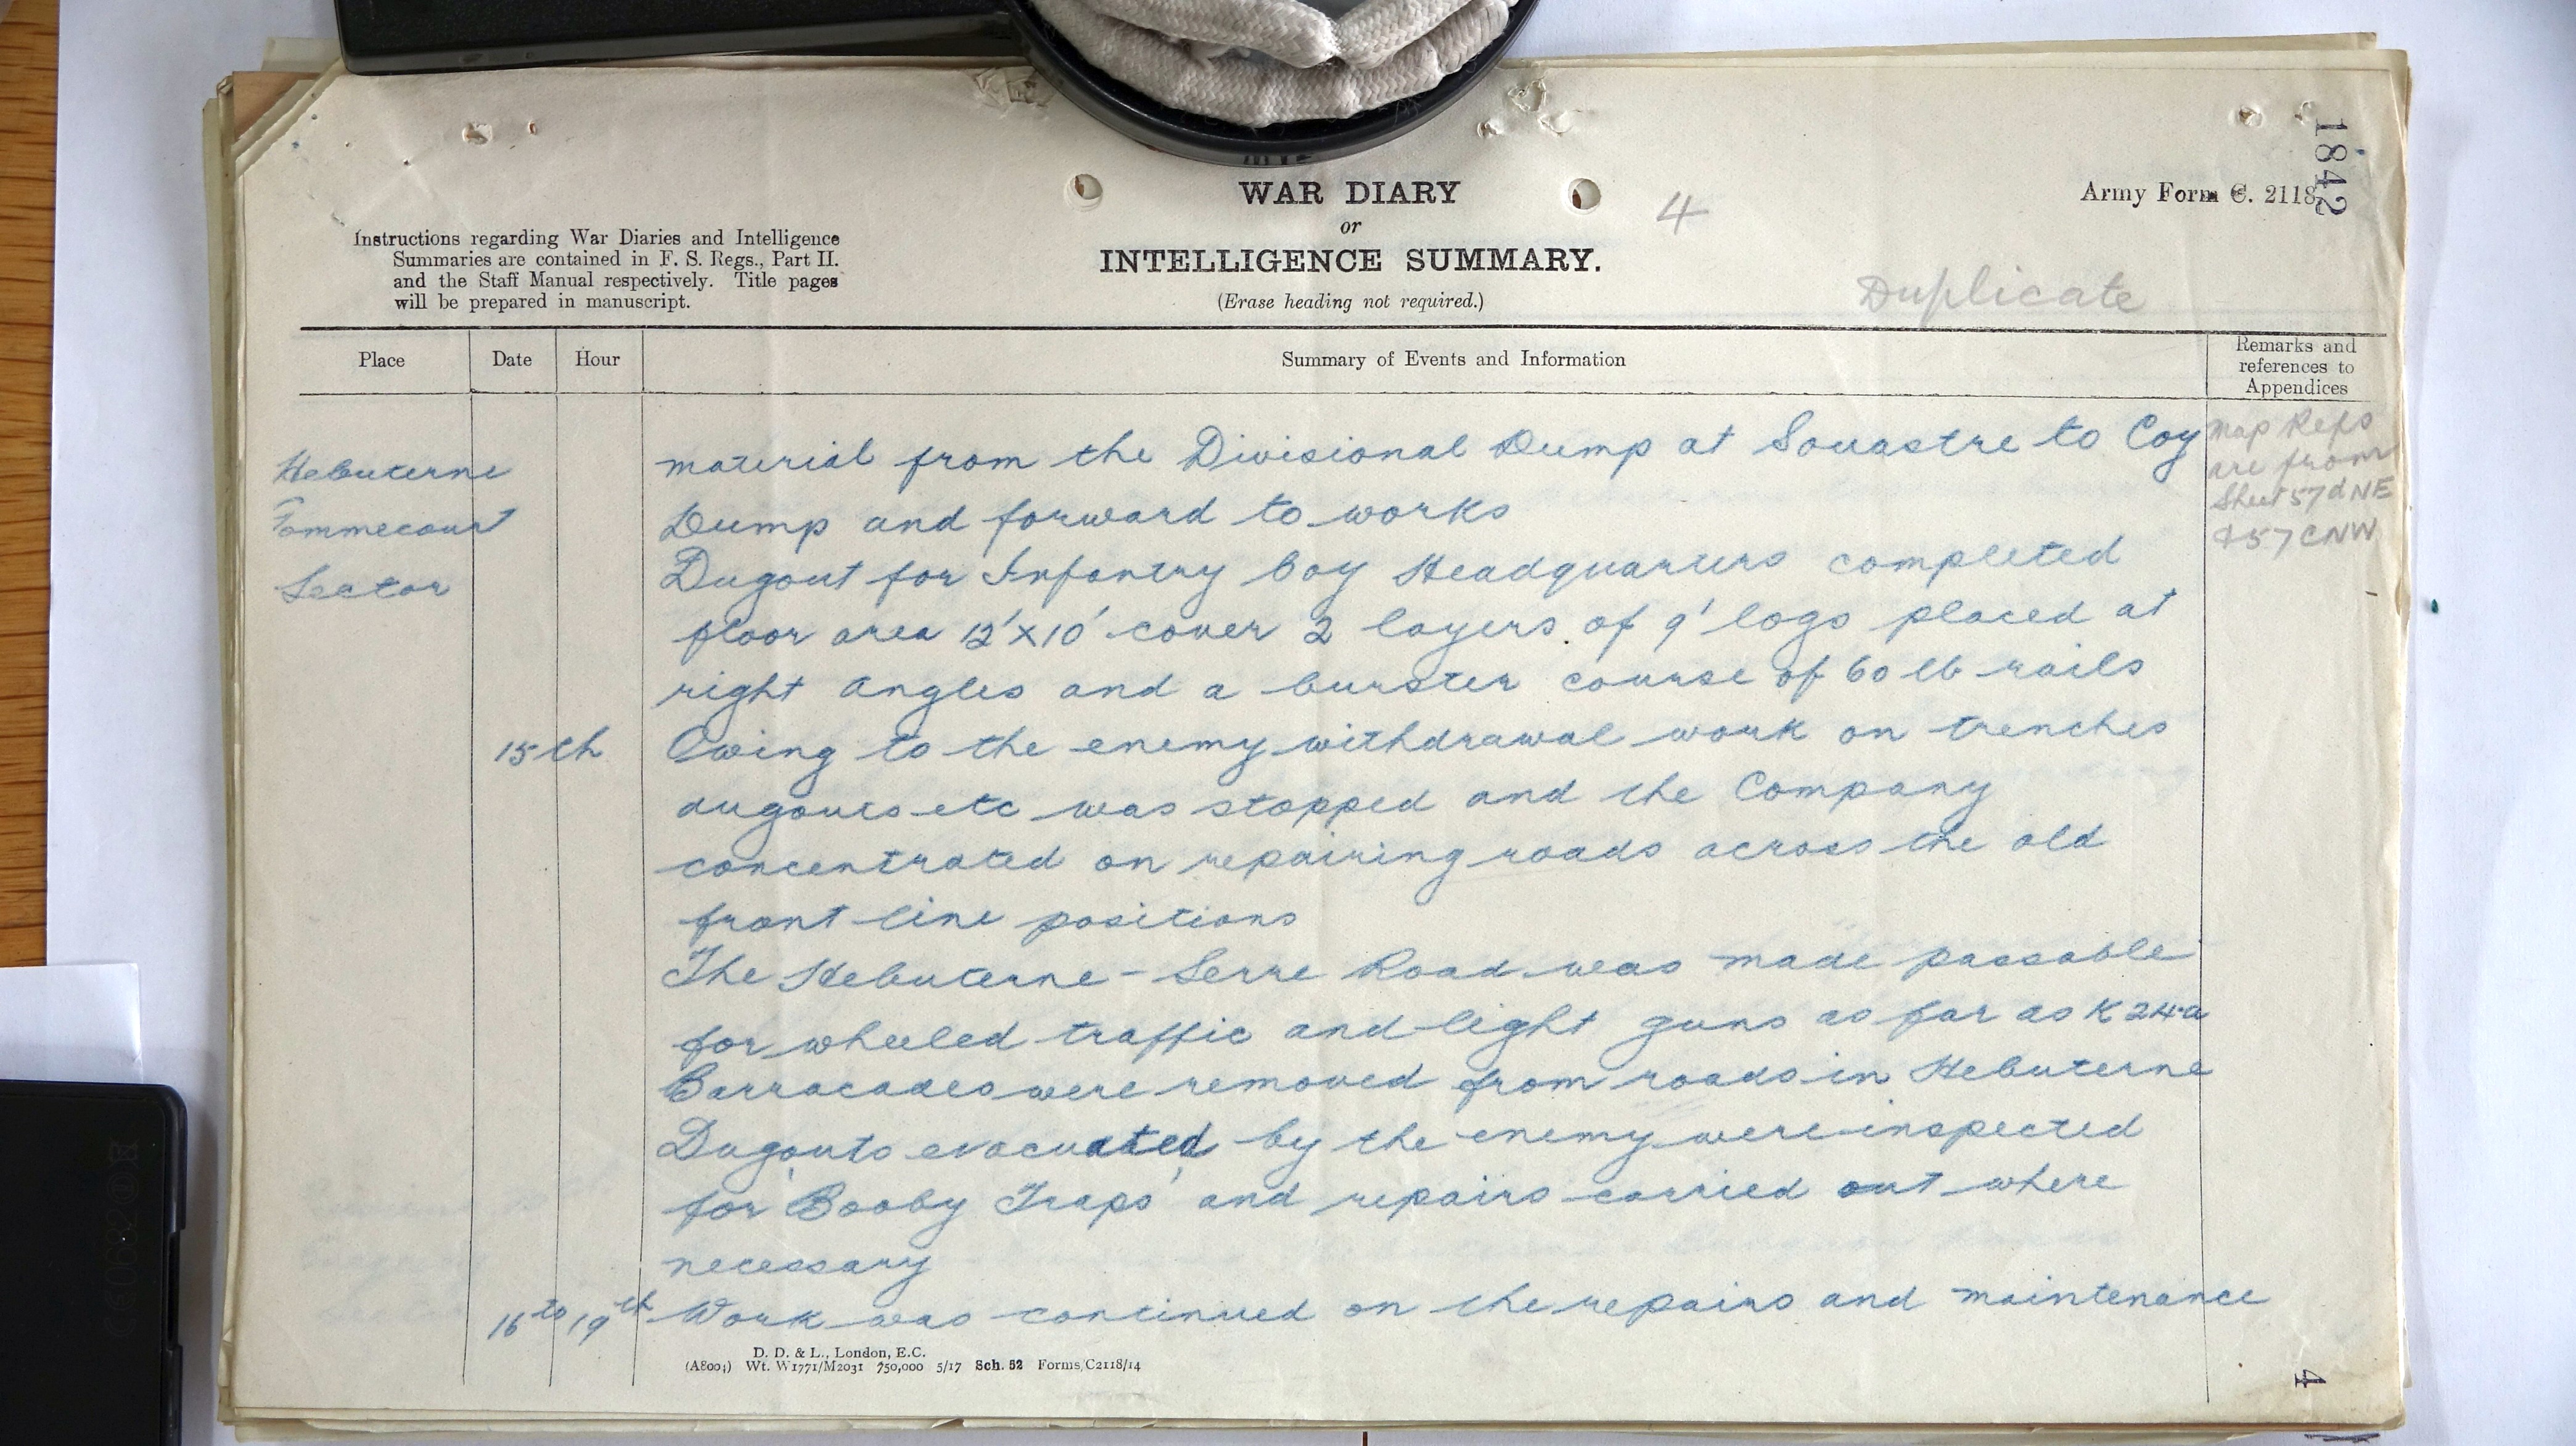 1842
WAR DIARY
or
INTELLIGENCE SUMMARY.
(Erase heading not required.)
4
Army Form C. 2118
Duplicate
Instructions regarding War Diaries and Intelligence
Summaries are contained in F. S. Regs., Part II.
and the Staff Manual respectively. Title pages
will be prepared in manuscript.
Place Date Hour Summary of Events and Information Remarks and references to Appendices
Hebuterne
Fommecourt
Sector
Map Refs
are from
Sheet 57d NE
& 57 C NW
material from the Divisional Dump at Souastre to Coy
Dump and forward to works
Dugout for Infantry Coy Headquarters completed
floor area 12'x10' cover 2 layers of 9' logs placed at
right angles and a burster course of 60 lb rails
15th Owing to the enemy withdrawal work on trenches
dugouts etc was stopped and the Company
concentrated on repairing roads across the old
front line positions
The Hebuterne - Serre Road was made passable
for wheeled traffic and light guns as far as K 24.a
Barracades were removed from roads in Hebuterne
Dugouts evacuated by the enemy were inspected
for 'Booby Traps' and repairs carried out where
necessary
16 to 19th Work was continued on the repairs and maintenance
D. D. & L., London, E.C.
(A8004) Wt. W1771/M2031 750,000 5/17 Sch. 52 Forms/C2118/14
4